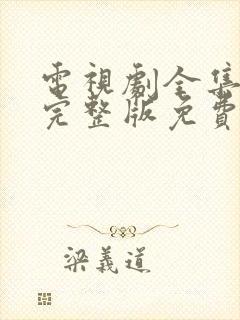 電視劇全集
完整版免費
梁義道